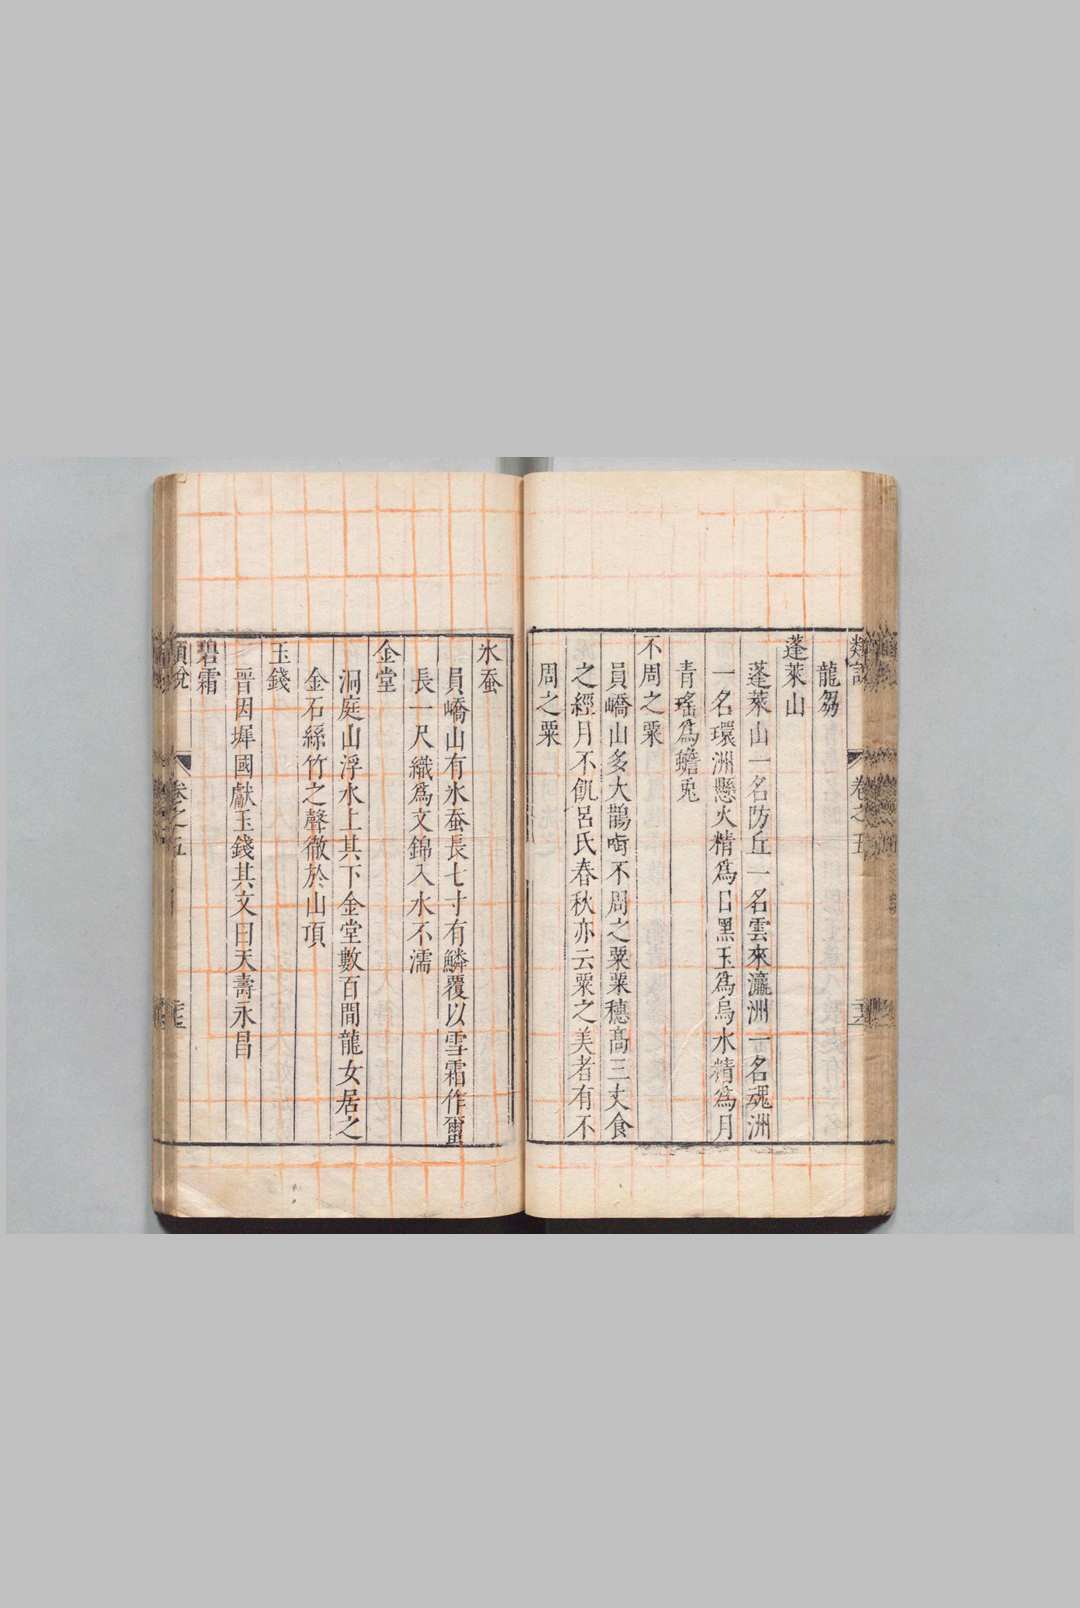 類說 卷之五
龍芻
蓬萊山
蓬萊山一名防丘一名雲來瀛洲一名魂洲
一名環洲懸火精爲日黑玉爲烏水精爲月
青瑤爲蟾兎
不周之粟
員嶠山多大鵲啣不周之粟粟穗高三丈食
之經月不飢呂氏春秋亦云粟之美者有不
周之粟
氷蚕
員嶠山有氷蚕長七寸有鱗覆以雪霜作蠒
長一尺織爲文錦入水不濡
金堂
洞庭山浮水上其下金堂數百間龍女居之
金石絲竹之聲徹於山頂
玉錢
晉因墀國獻玉錢其文曰天壽永昌
碧霜
類說 卷之五